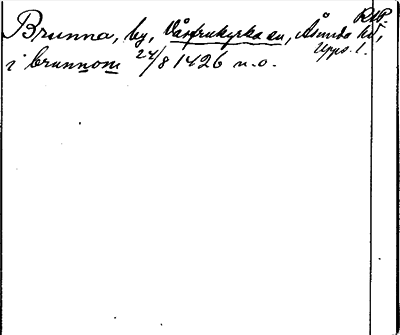 RAP.
Brunna, by, Vårfrukyrka sn, Åsunda hd,
Upps. l.
i brunnom 24/8 1426 n.o.